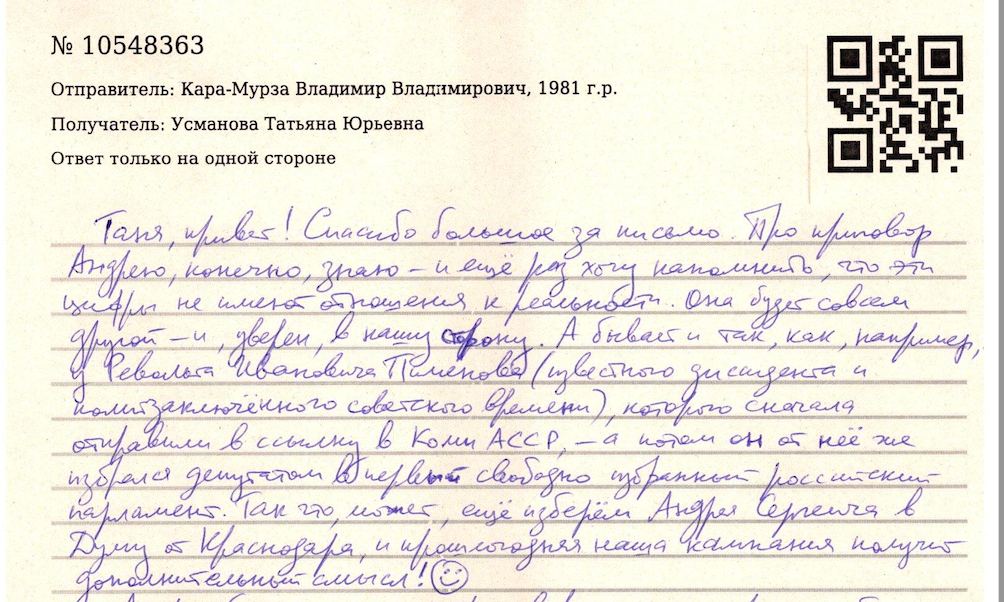 № 10548363
Отправитель: Кара-Мурза Владимир Владимирович, 1981 г.р.
Получатель: Усманова Татьяна Юрьевна
Ответ только на одной стороне
Таня, привет! Спасибо большое за письмо. Про приговор
Андрею, конечно, знаю – и ещё раз хочу напомнить, что эти
цифры не имеют отношения к реальности. Она будет совсем
другой – и, уверен, в нашу сторону. А бывает и так, как, например,
у Револьта Ивановича Пименова (известного диссидента и
политзаключённого советского времени), которого сначала
отправили в ссылку в Коми АССР, – а потом он от неё же
избрался депутатом в первый свободно избранный российский
парламент. Так что, может, ещё изберём Андрея Сергеича в
Думу от Краснодара, и прошлогодняя наша кампания получит
дополнительный смысл! ☺